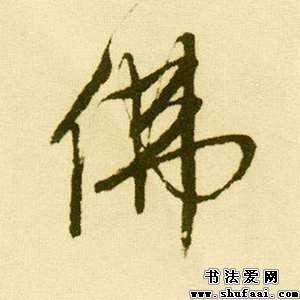 佛
书法爱网
www.shufaai.com